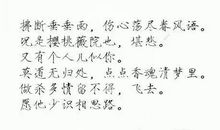 拂断垂垂雨，伤心荡尽春风语。
况是樱桃薇院也，堪悲。
又有个人儿似你。
莫道无归处，点点香魂清梦里。
做杀多情留不得，飞去。
愿他少识相思路。